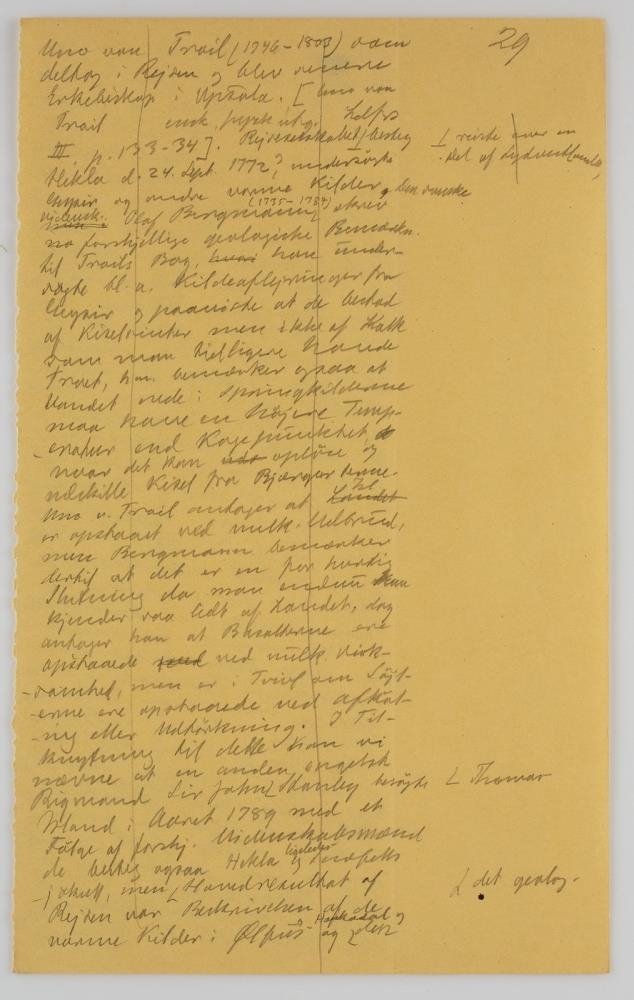 29
Uno von Troil (1746-1803) som
deltog i Rejsen og blev senere
Erkebiskop i Upsala. [Uno von
Troil
III, p. 133-34]. Rejseselskabet ⊥ besteg
⊥ rejste over en
Del af Sydvestlandet,
Hekla d. 24. Sept. 1772, undersøgte
Geysir og andre varme Kilder, den svenske
(1735-1784)
vidensk. Olaf Bergmann skrev
no forskjellige geologiske Bemærkn.
til Troils Bog, han under-
søgte bl. a. Kildeaflejringer fra
Geysir og paaviste at de bestod
af Kiselsinter men ikke af Kalk
som man tidligere havde
troet, han bemærker ogsaa at
Vandet nede i Springkilderne
maa have en højere Temp-
eratur end Kogepunktet,
naar det kan opløse og
udskille Kisel fra Bjærgarterne.
Uno v. Troil antager at Isl.
er opstaaet ved vulk. Udbrud,
men Bergmann bemærker
dertil at det er en for hurtig
Slutning da man endnu kun
kjender saa lidt af Landet, dog
antager han at Basalterne ere
opstaaede ved vulk. Virk-
-somhed, men er i Tvivl om Søjl-
-erne ere opstaaede ved Afkøl-
-ing eller Udtørkning. I Til-
knytning til dette kan vi
nævne at en anden engelsk
Rigmand Sir John L Stanley besøgte
L Thomas
Island i Aaret 1789 med et
Følge af forskj. Videnskabsmænd
de besteg ogsaa Hekla og Snæfells
ligeledes
-jøkull, men L Hovedresultat af
L det geolog.
Rejsen var Beskrivelsen af de
varme Kilder i Ølfus og
Haukadal og